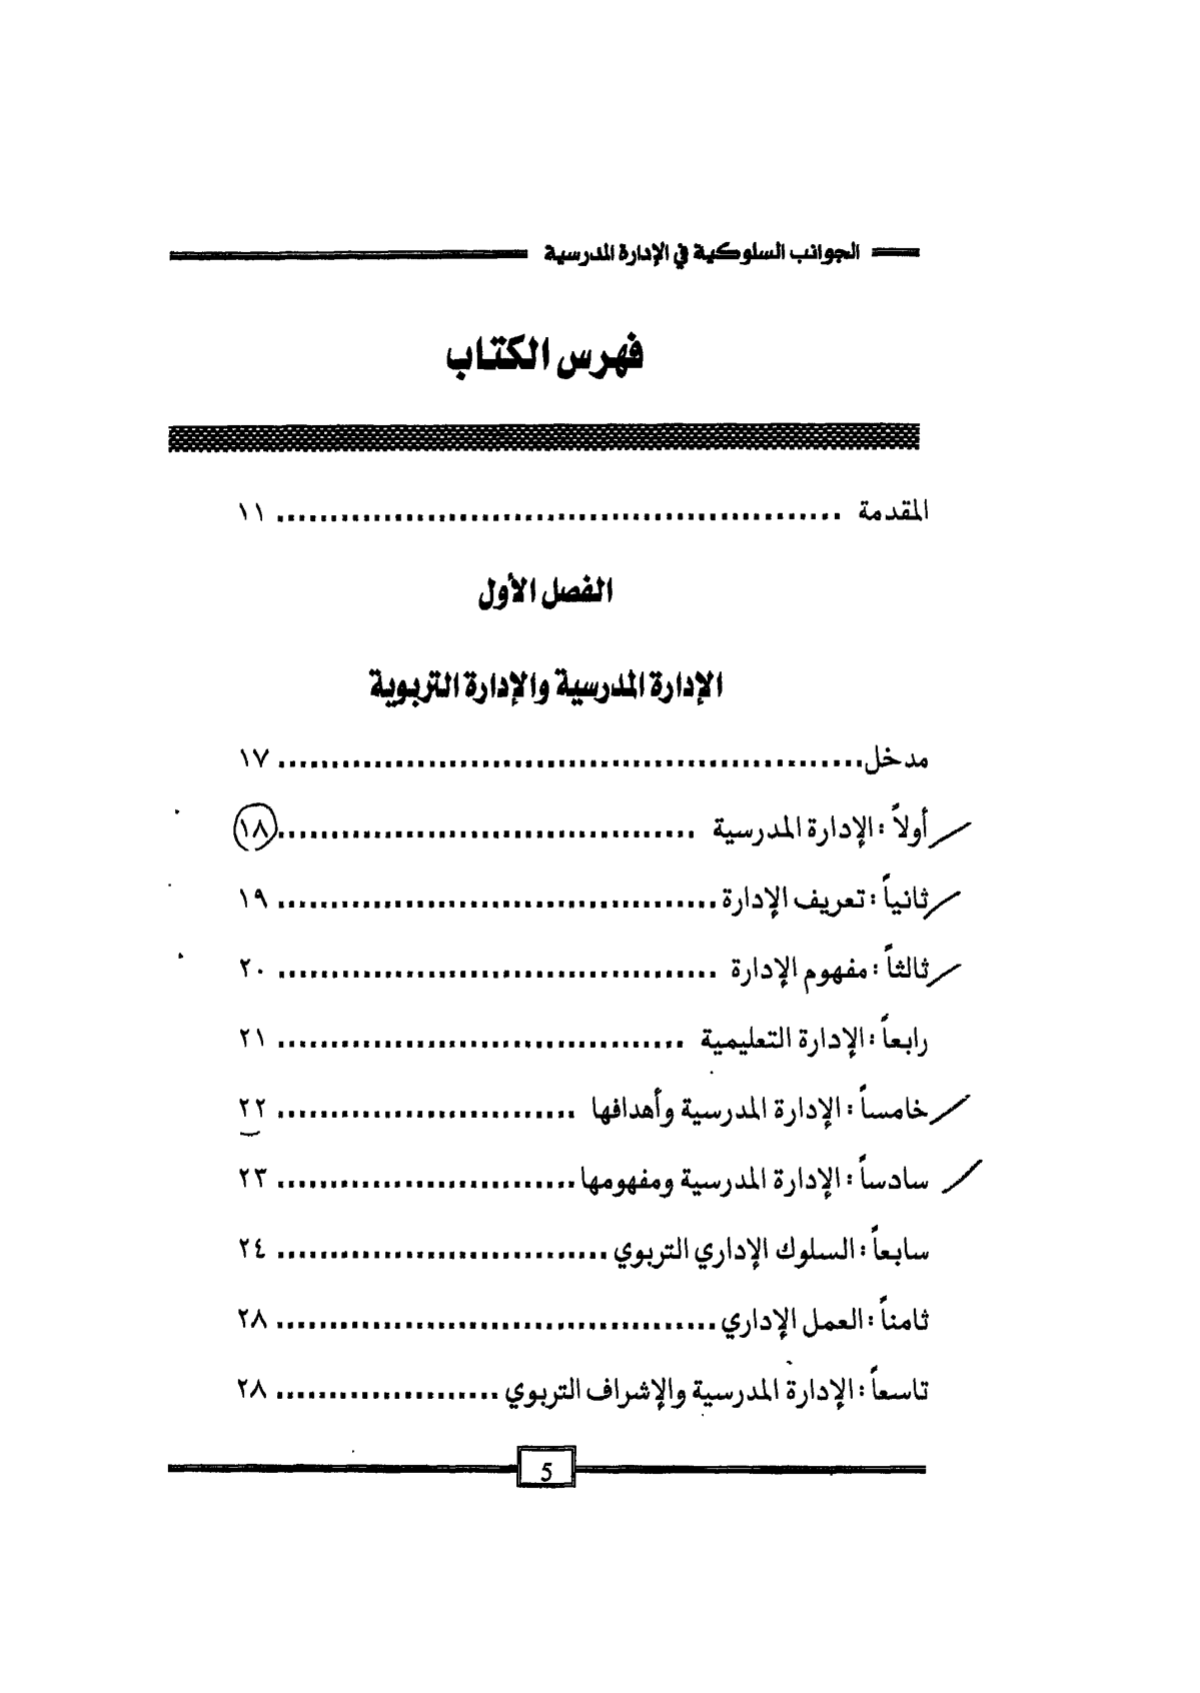 الجوانب السلوكية في الإدارة المدرسية
فهرس الكتاب
المقدمة .................................................... ١١
الفصل الأول
الإدارة المدرسية والإدارة التربوية
مدخل...................................................... ١٧
أولاً : الإدارة المدرسية .......................................١٨
ثانياً : تعريف الإدارة ........................................ ١٩
ثالثاً : مفهوم الإدارة ........................................ ٢٠
رابعاً : الإدارة التعليمية ...................................... ٢١
خامساً : الإدارة المدرسية وأهدافها ............................ ٢٢
سادساً : الإدارة المدرسية ومفهومها............................ ٢٣
سابعاً : السلوك الإداري التربوي ............................... ٢٤
ثامناً : العمل الإداري ......................................... ٢٨
تاسعاً : الإدارة المدرسية والإشراف التربوي ..................... ٢٨
5